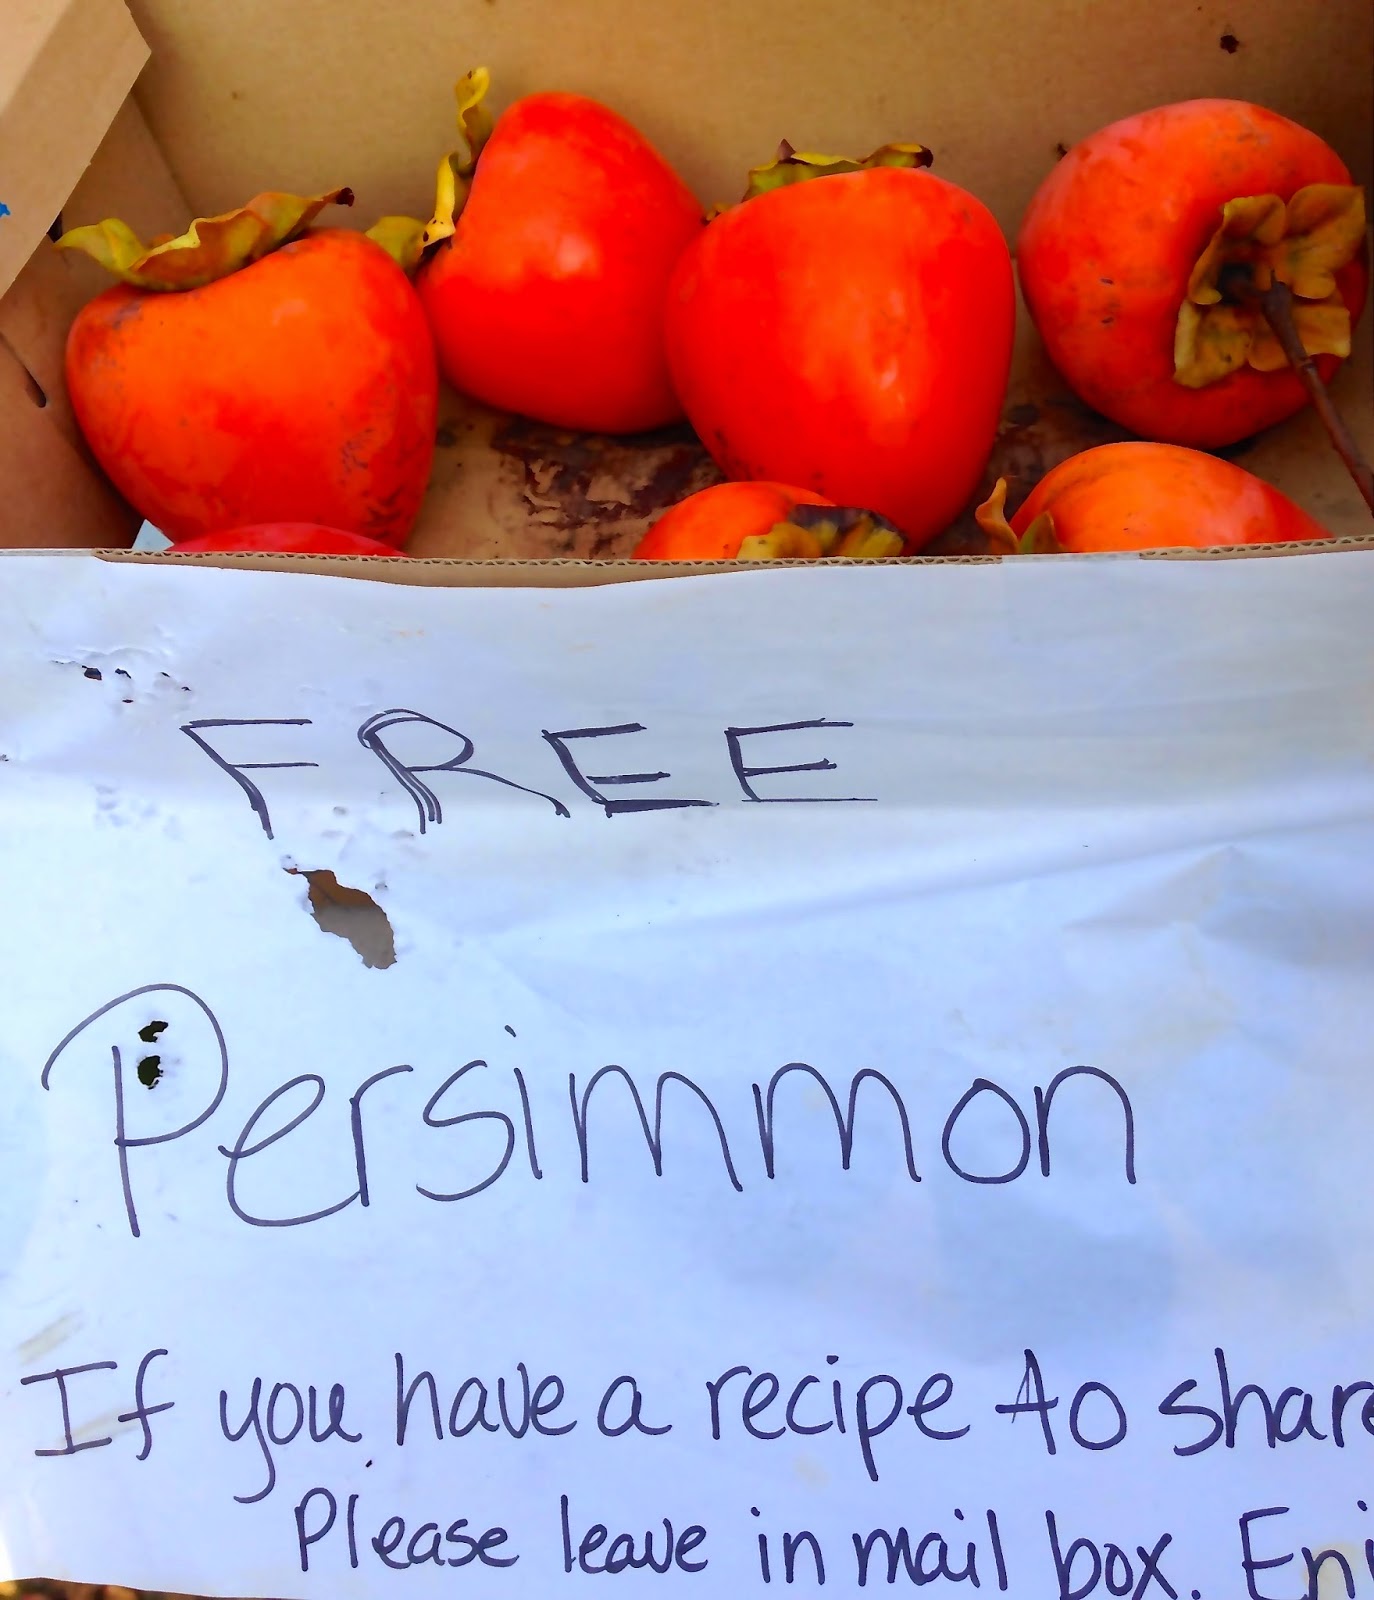 FREE
Persimmon
If you have a recipe to share
Please leave in mail box. Enj